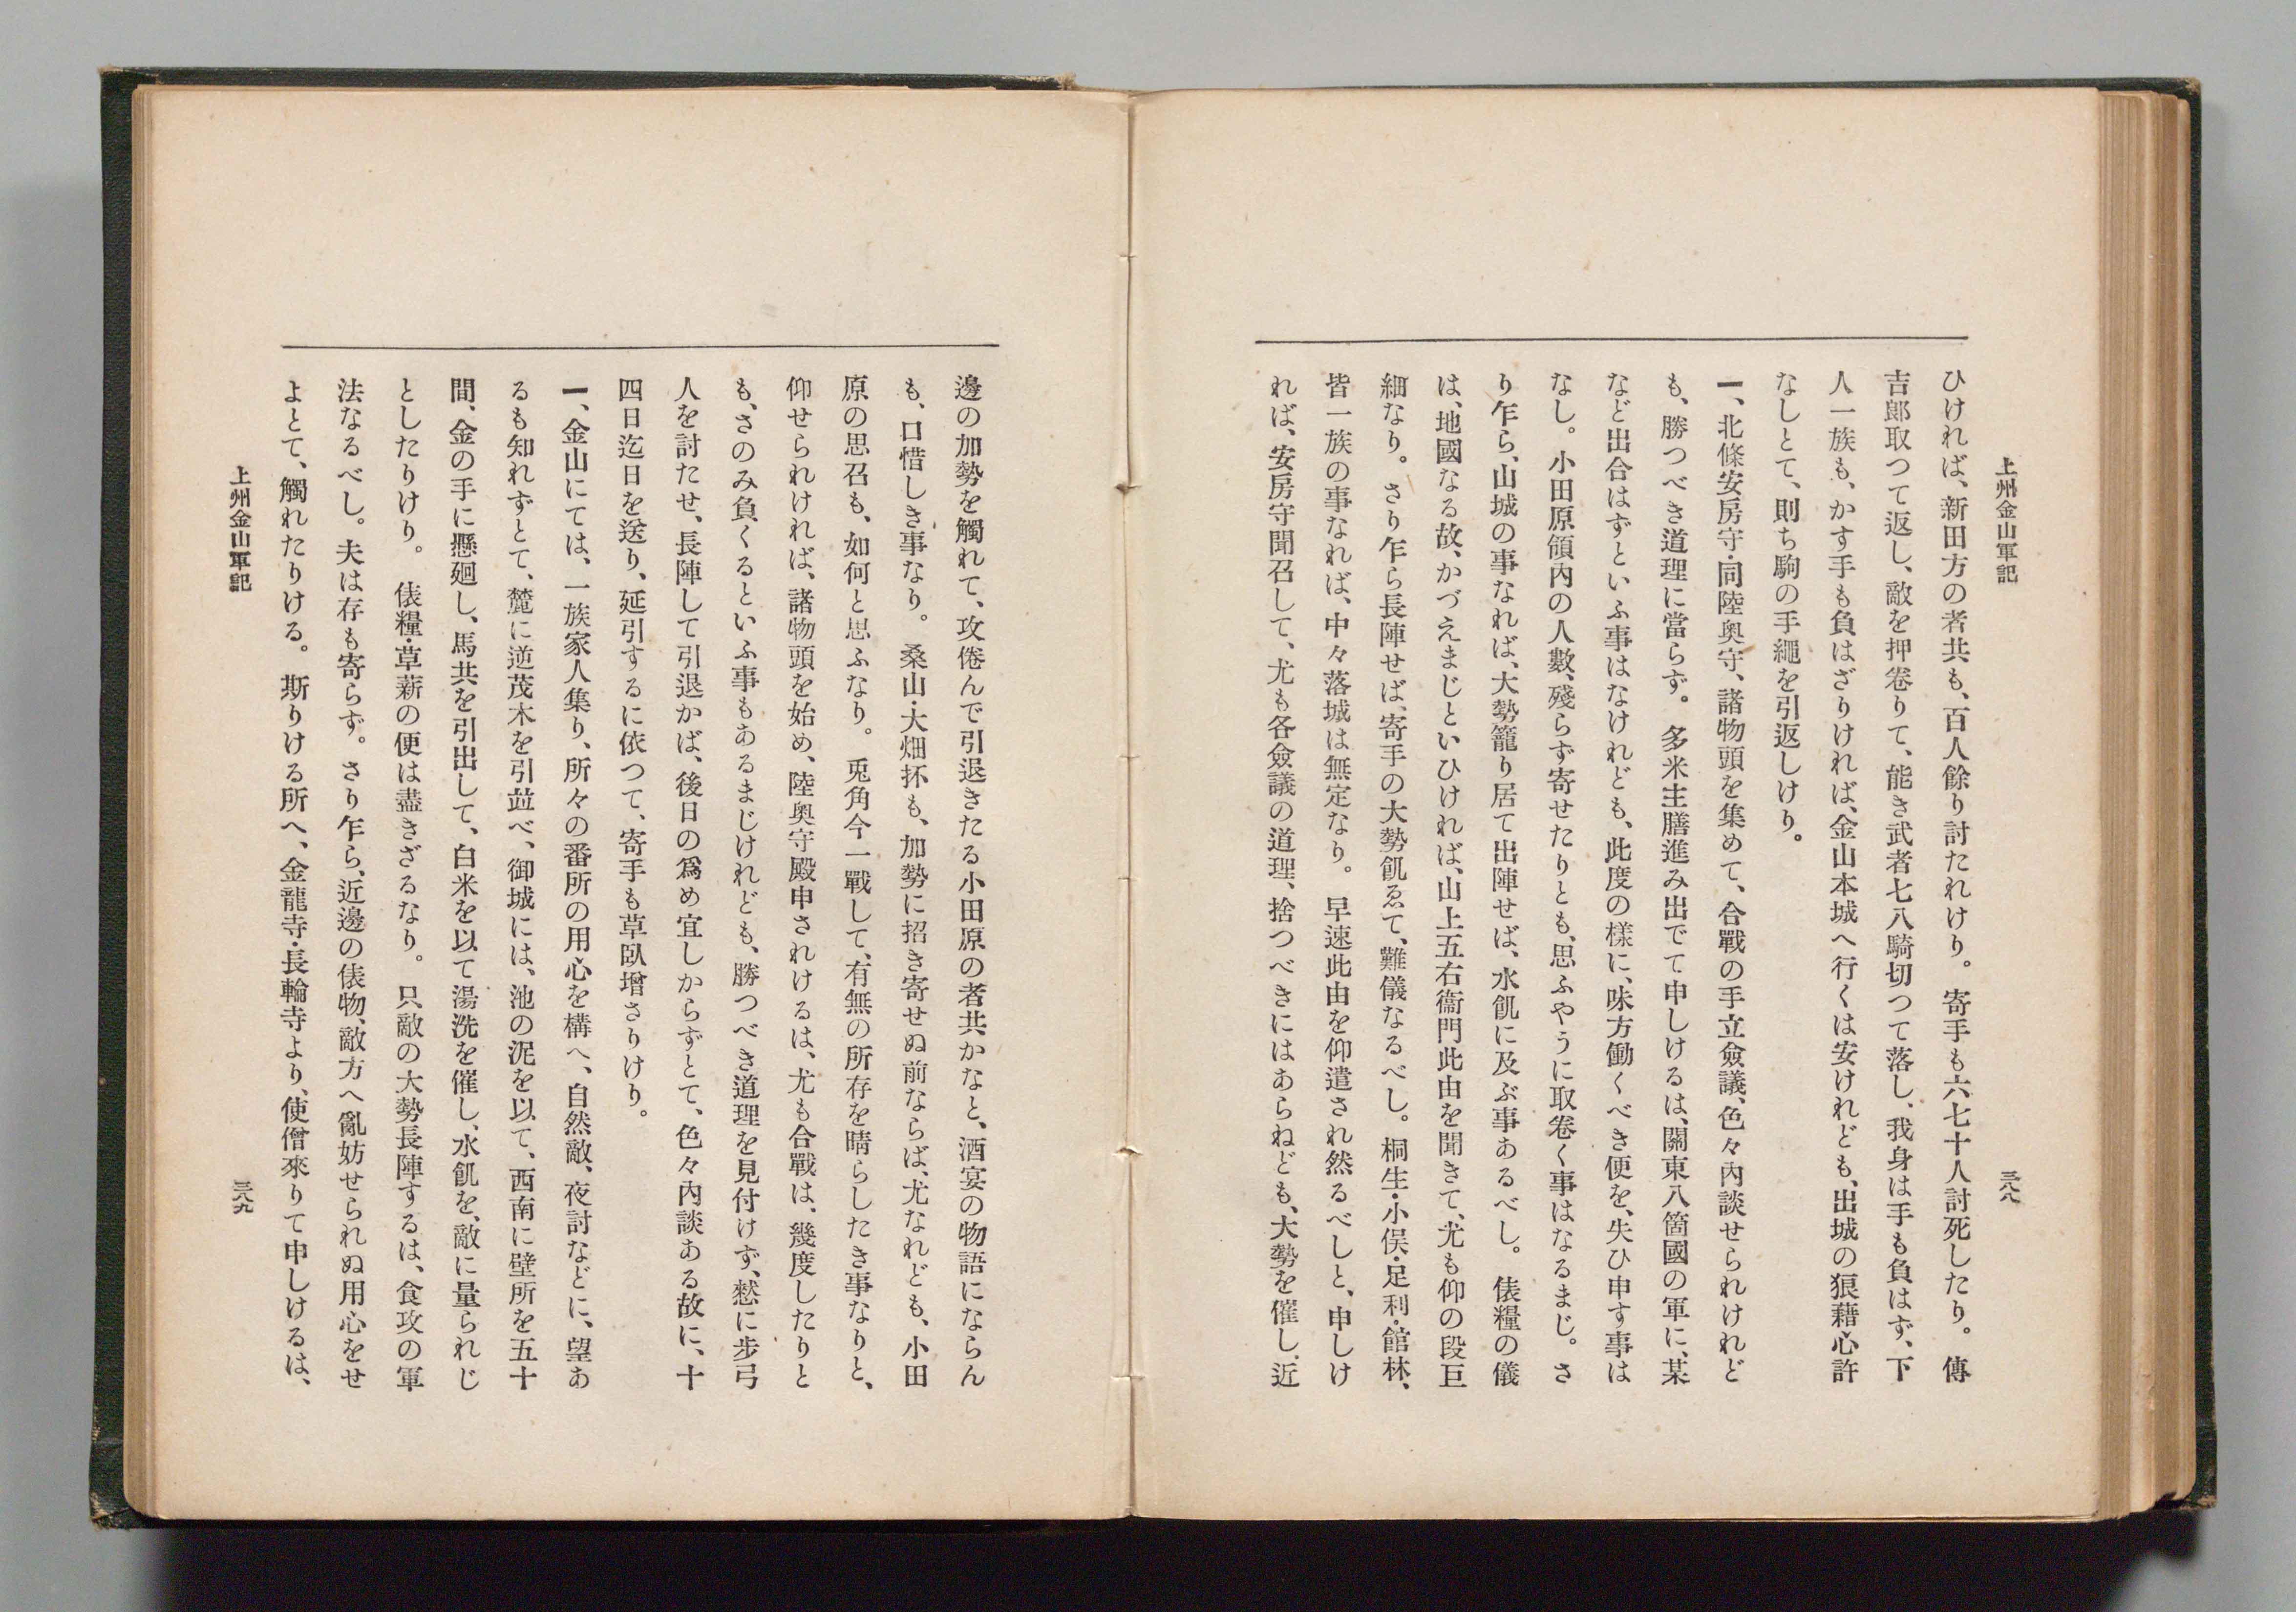 上州金山軍記
三八八
ひければ、新田方の者共も、百人餘り討たれけり。寄手も六七十人討死したり。傳
吉郞取つて返し、敵を押卷りて、能き武者七八騎切つて落し、我身は手も負はず、下
人一族も、かす手も負はざりければ、金山本城へ行くは安けれども、出城の狼藉心許
なしとて、則ち駒の手繩を引返しけり。
一、北條安房守・同陸奥守、諸物頭を集めて、合戰の手立僉議、色々內談せられけれど
も、勝つべき道理に當らず。多米主膳進み出でて申しけるは、關東八箇國の軍に、某
など出合はずといふ事はなけれども、此度の樣に、味方働くべき便を、失ひ申す事は
なし。小田原領內の人數、殘らず寄せたりとも、思ふやうに取卷く事はなるまじ。さ
り乍ら、山城の事なれば、大勢籠り居て出陣せば、水飢に及ぶ事あるべし。俵糧の儀
は、地國なる故、かづえまじといひければ、山上五右衞門此由を聞きて、尤も仰の段巨
細なり。さり乍ら長陣せば、寄手の大勢飢ゑて、難儀なるべし。桐生・小俣・足利・館林、
皆一族の事なれば、中々落城は無定なり。早速此由を仰遣され然るべしと、申しけ
れば、安房守聞召して、尤も各僉議の道理、捨つべきにはあらねども、大勢を催し、近
邊の加勢を觸れて、攻倦んで引退きたる小田原の者共かなと、酒宴の物語にならん
も、口惜しき事なり。桑山・大畑抔も、加勢に招き寄せぬ前ならば、尤なれども、小田
原の思召も、如何と思ふなり。兎角今一戰して、有無の所存を晴らしたき事なりと、
仰せられければ、諸物頭を始め、陸奥守殿申されけるは、尤も合戰は、幾度したりと
も、さのみ負くるといふ事もあるまじけれども、勝つべき道理を見付けず、憖に步弓
人を討たせ、長陣して引退かば、後日の爲め宜しからずとて、色々內談ある故に、十
四日迄日を送り、延引するに依つて、寄手も草臥增さりけり。
一、金山にては、一族家人集り、所々の番所の用心を構へ、自然敵、夜討などに、望あ
るも知れずとて、麓に逆茂木を引竝べ、御城には、池の泥を以て、西南に壁所を五十
間、金の手に懸廻し、馬共を引出して、白米を以て湯洗を催し、水飢を、敵に量られじ
としたりけり。俵糧・草薪の便は盡きざるなり。只敵の大勢長陣するは、食攻の軍
法なるべし。夫は存も寄らず。さり乍ら、近邊の俵物、敵方へ亂妨せられぬ用心をせ
よとて、觸れたりける。斯りける所へ、金龍寺・長輪寺より、使僧來りて申しけるは、
上州金山軍記
三八九